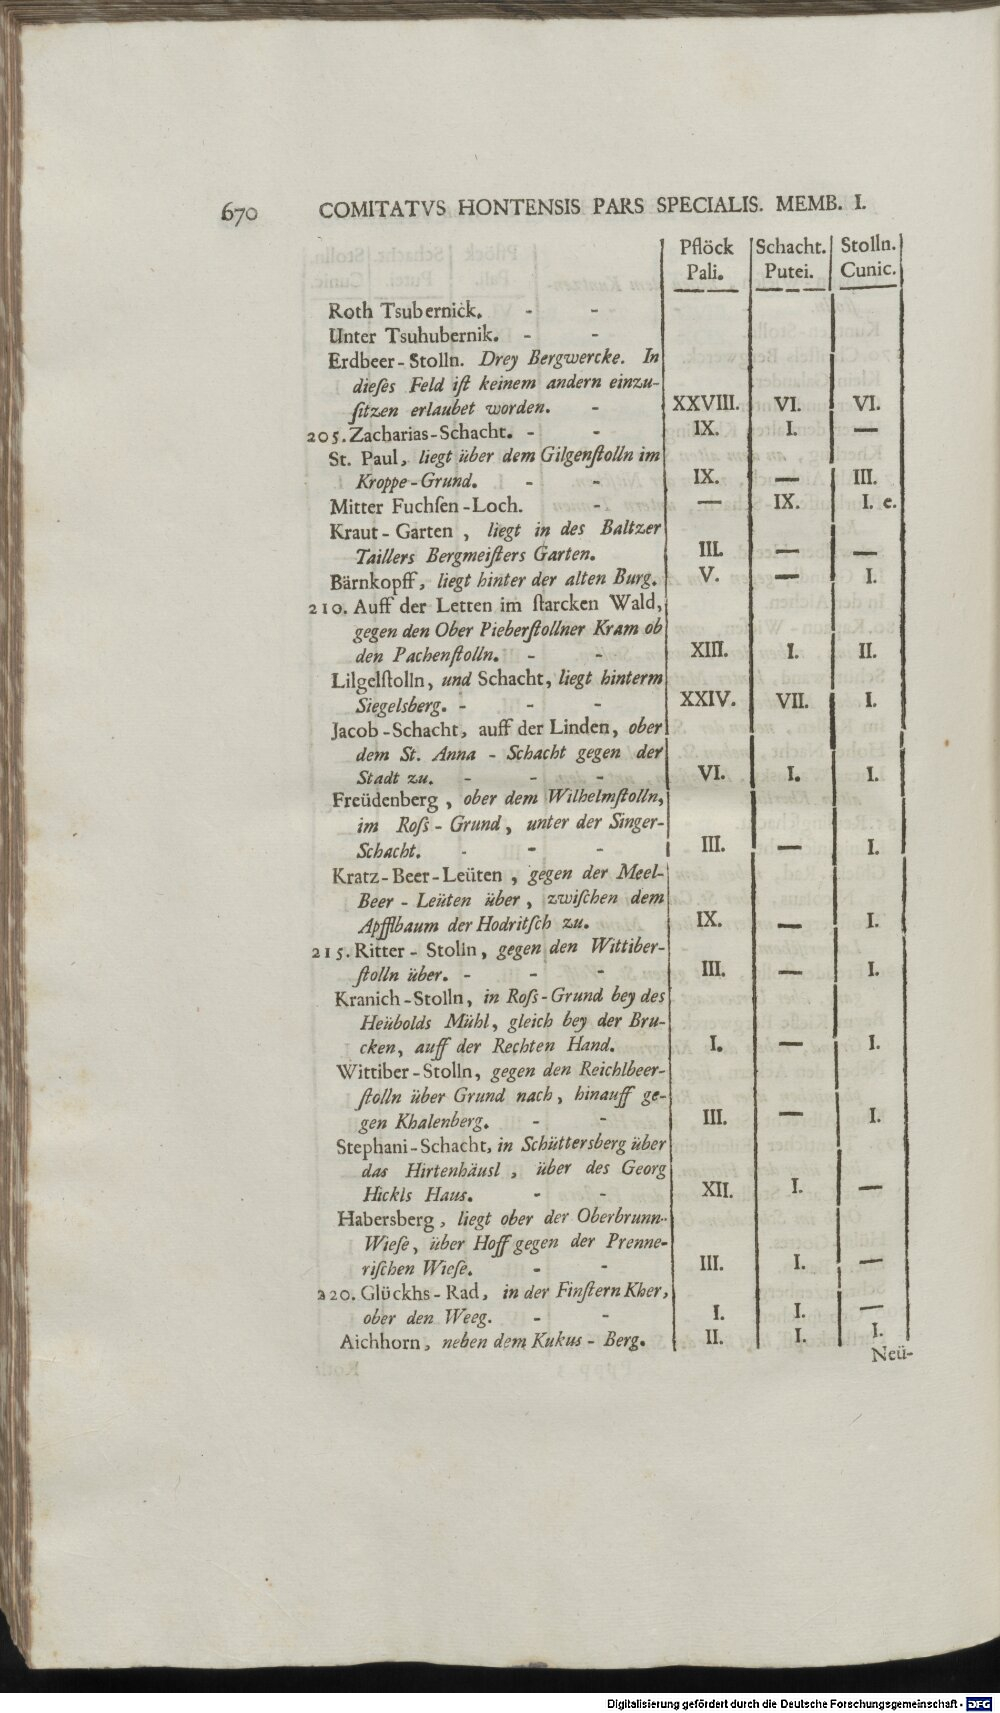 670 COMITATVS HONTENSIS PARS SPECIALIS. MEMB. I.
Pflöck Schacht. Stolln.
Pali. Putei. Cunic.
Roth Tsubernick. - -
Unter Tsuhubernik. - -
Erdbeer-Stolln. Drey Bergwercke. In
dieſes Feld iſt keinem andern einzu-
ſitzen erlaubet worden. - XXVIII. VI. VI.
205. Zacharias-Schacht. - - IX. I. —
St. Paul, liegt über dem Gilgenſtolln im
Kroppe-Grund. - - IX. — III.
Mitter Fuchſen-Loch. - — IX. I. e.
Kraut-Garten, liegt in des Baltzer
Taillers Bergmeiſters Garten. III. — —
Bärnkopff, liegt hinter der alten Burg. V. — I.
210. Auff der Letten im ſtarcken Wald,
gegen den Ober Pieberſtollner Kram ob
den Pachenſtolln. - - XIII. I. II.
Lilgelſtolln, und Schacht, liegt hinterm
Siegelsberg. - - - XXIV. VII. I.
Jacob-Schacht, auff der Linden, ober
dem St. Anna - Schacht gegen der
Stadt zu. - - - VI. I. I.
Freüdenberg, ober dem Wilhelmſtolln,
im Roſs-Grund, unter der Singer-
Schacht. - - - III. — I.
Kratz-Beer-Leüten, gegen der Meel-
Beer-Leüten über, zwiſchen dem
Apfflbaum der Hodritſch zu. IX. — I.
215. Ritter-Stolln, gegen den Wittiber-
ſtolln über. - - - III. — I.
Kranich-Stolln, in Roſs-Grund bey des
Heübolds Mühl, gleich bey der Bru-
cken, auff der Rechten Hand. I. — I.
Wittiber-Stolln, gegen den Reichlbeer-
ſtolln über Grund nach, hinauff ge-
gen Khalenberg. - - III. — I.
Stephani-Schacht, in Schüttersberg über
das Hirtenhäusl, über des Georg
Hickls Haus. - - XII. I. —
Habersberg, liegt ober der Oberbrunn-
Wieſe, über Hoff gegen der Prenne-
riſchen Wieſe. - - III. I. —
220. Glückhs-Rad, in der Finſtern Kher,
ober den Weeg. - - I. I. —
Aichhorn, neben dem Kukus-Berg. II. I. I.
Neü-
Digitalisierung gefördert durch die Deutsche Forschungsgemeinschaft - DFG